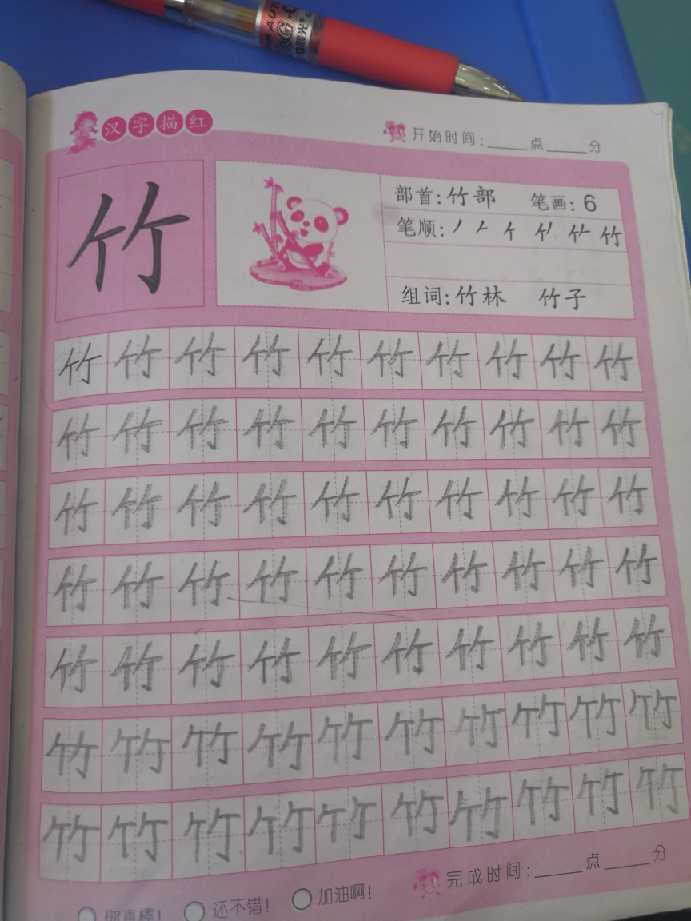 汉字描红
开始时间：____点____分
竹
部首：竹部 笔画：6
笔顺：丿 𠂉 亻 竹
组词：竹林 竹子
竹 竹 竹 竹 竹 竹 竹 竹 竹 竹
竹 竹 竹 竹 竹 竹 竹 竹 竹 竹
竹 竹 竹 竹 竹 竹 竹 竹 竹 竹
竹 竹 竹 竹 竹 竹 竹 竹 竹 竹
竹 竹 竹 竹 竹 竹 竹 竹 竹 竹
竹 竹 竹 竹 竹 竹 竹 竹 竹 竹
竹 竹 竹 竹 竹 竹 竹 竹 竹 竹
完成时间：____点____分
你真棒！ 还不错！ 加油啊！